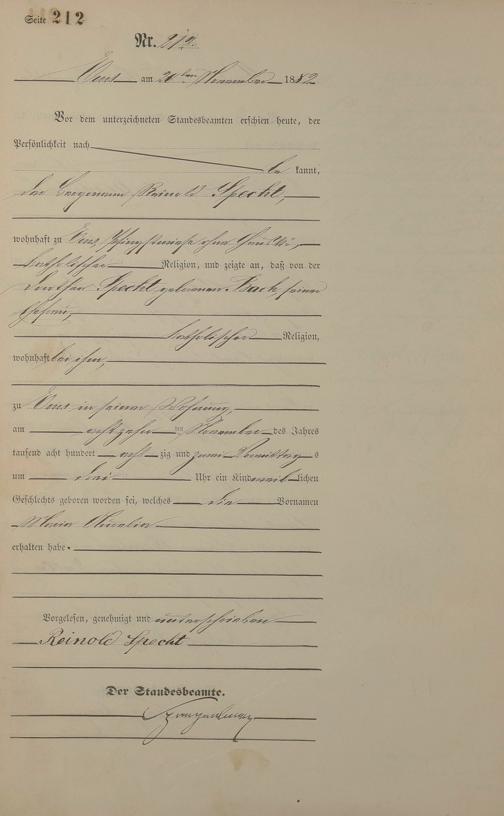 Seite 212
Nr. 212.
Ems am 20ten November 1882
Vor dem unterzeichneten Standesbeamten erschien heute, der
Persönlichkeit nach
be kannt,
der Bergmann Reinold Specht,
wohnhaft zu Ems,
katholischer Religion, und zeigte an, daß von der
Specht geborenen Bach, seiner
Ehefrau,
katholischer Religion,
wohnhaft bei ihm,
zu Ems in seiner Wohnung,
am achtzehn ten November des Jahres
tausend acht hundert acht zig und zwei Vormittag s
um drei Uhr ein Kind weib lichen
Geschlechts geboren worden sei, welches die Vornamen
Maria
erhalten habe.
Vorgelesen, genehmigt und unterschrieben
Reinold Specht
Der Standesbeamte.